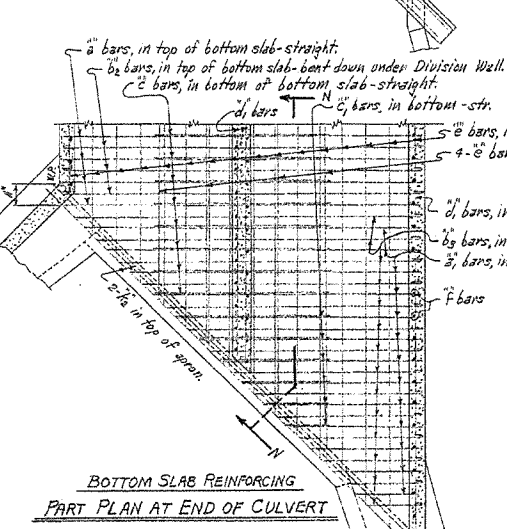 "a" bars, in top of bottom slab-straight.
"b2" bars, in top of bottom slab-bent down under Division Wall.
"c" bars, in bottom of bottom slab-straight.
N
"d1" bars
"c1" bars, in bottom-str.
5-"e" bars, i
4-"e" bar
"d1" bars, in
"b3" bars, in
"a1" bars, in
"f" bars
2-"k2" in top of apron.
N
BOTTOM SLAB REINFORCING
PART PLAN AT END OF CULVERT